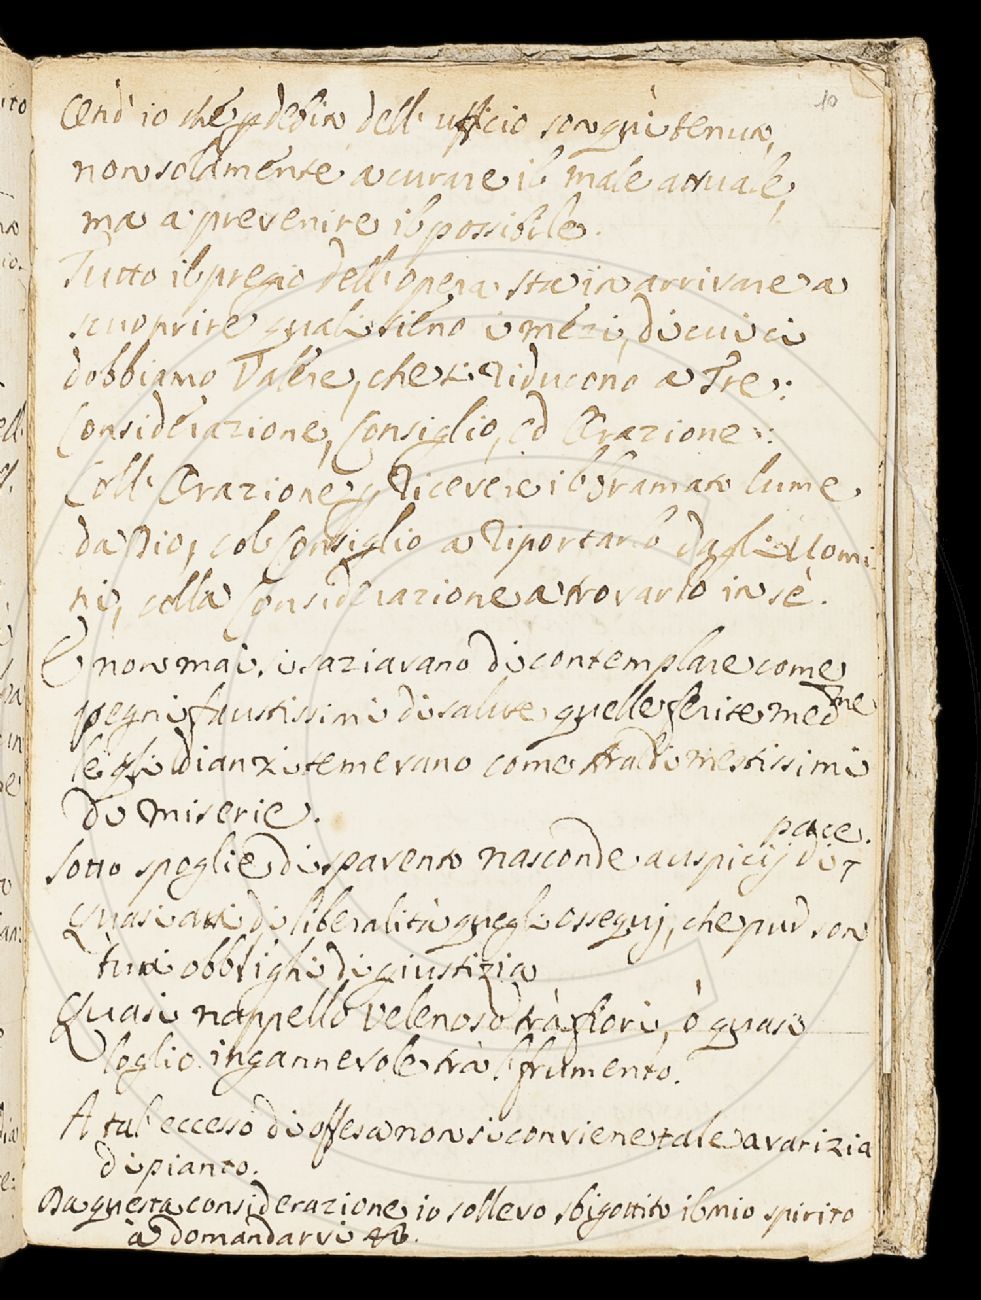 10
non solamente a curare il male attuale,
ma a prevenire il possibile.
Tutto il pregio dell' opera sta in arrivare a
scuoprire quali sieno i mezi, di cui ci
dobbiamo Valere, che si Riducono a Tre:
Considerazione, Consiglio, ed Orazione:
Coll' Orazione a Ricevere il bramato lume
da Dio, col Consiglio a Riportarlo dagli Uomi
ni, colla Considerazione a trovarlo in sè.
E non mai si saziavano di contemplare come
pegni faustissimi di salute quelle ferite med.me
le q.li dianzi temevano come Araldi mestissimi
di miserie.
Sotto spoglie di spavento nasconde auspicij di
pace.
Quasi atti di liberalità quegl' ossequij, che pur son
tutti obblighi di giustizia
Quasi nappello velenoso trà fiori, ò quasi
loglio ingannevole trà 'l frumento.
A tal' eccesso di offesa non si conviene tale avarizia
di pianto.
Da questa considerazione io sollevo sbigottito il mio spirito
à domandarvi